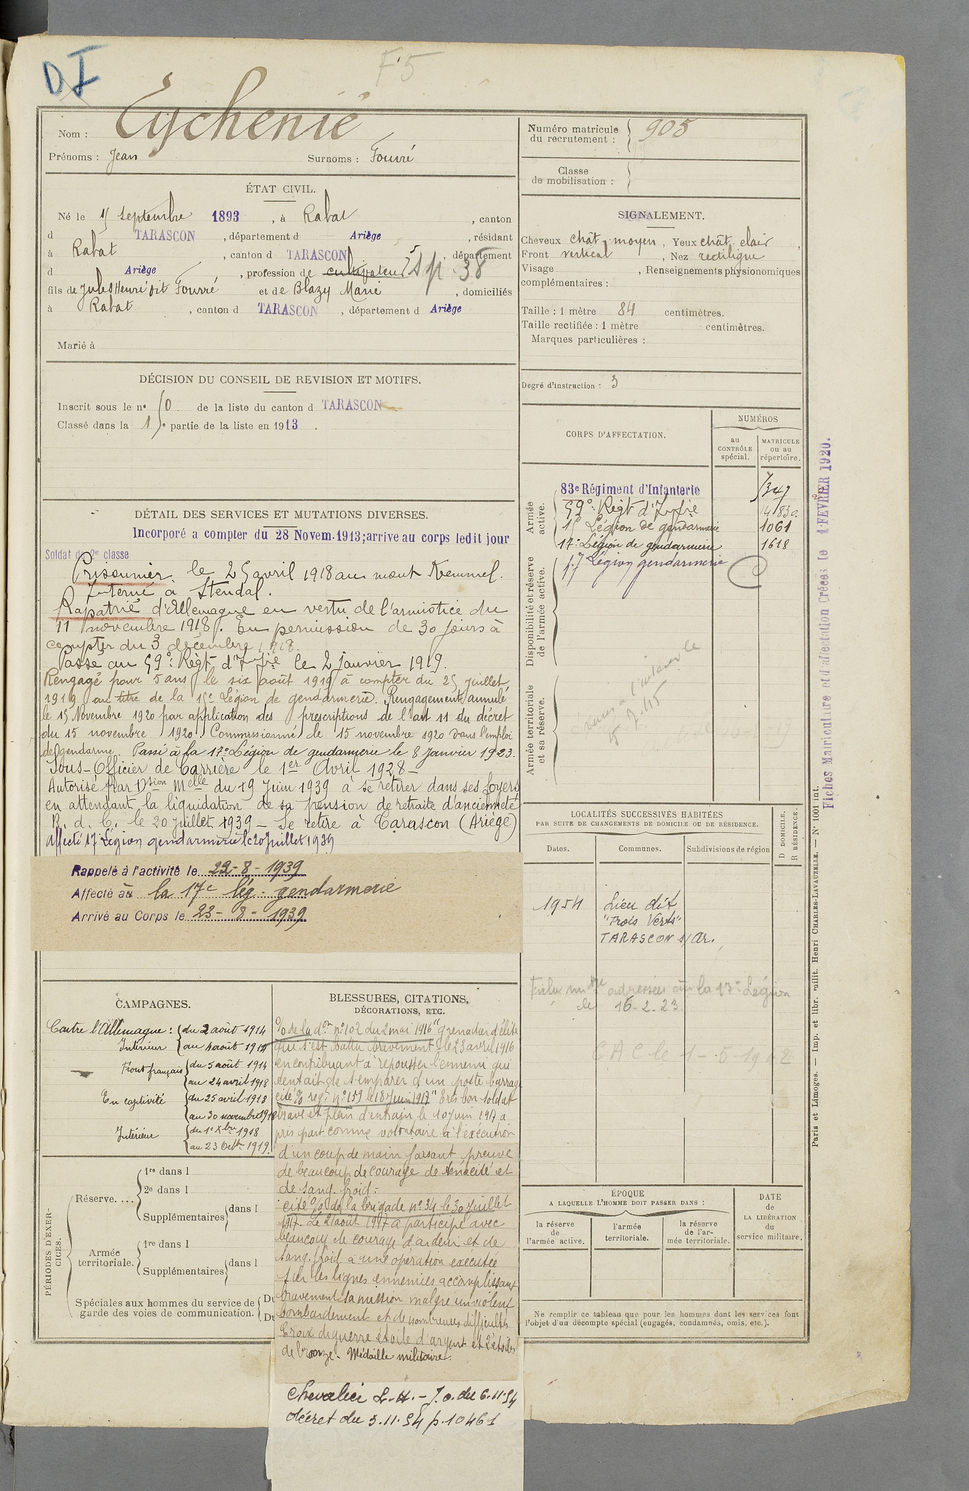 DI
F5
Nom : Eychenié
Prénoms : Jean Surnoms : Fouré
Numéro matricule du recrutement : 905
Classe de mobilisation :
ÉTAT CIVIL.
Né le 4 septembre 1893, à Rabat, canton
d TARASCON, département d Ariège, résidant
à Rabat, canton d TARASCON, département
d Ariège, profession de cultivateur Sp 38
fils de Jules Henri dit Fourré et de Blazy Marie, domiciliés
à Rabat, canton d TARASCON, département d Ariège
Marié à
SIGNALEMENT.
Cheveux chât. moyen, Yeux chât. clair,
Front vertical, Nez rectiligne
Visage , Renseignements physionomiques
complémentaires :
Taille : 1 mètre 84 centimètres.
Taille rectifiée : 1 mètre centimètres.
Marques particulières :
Degré d'instruction : 3
DÉCISION DU CONSEIL DE REVISION ET MOTIFS.
Inscrit sous le n° 50 de la liste du canton d TARASCON
Classé dans la 1re partie de la liste en 1913.
DÉTAIL DES SERVICES ET MUTATIONS DIVERSES.
Incorporé a compter du 28 Novem. 1913; arrive au corps ledit jour
Soldat de 2e classe
Prisonnier le 25 avril 1918 au mont Kemmel.
Interné à Stendal.
Rapatrié d'Allemagne en vertu de l'armistice du
11 novembre 1918. En permission de 30 jours à
compter du 3 décembre 1918.
Passé au 59e Régt d'Infrie le 2 janvier 1919.
Rengagé pour 5 ans le six août 1919 à compter du 25 juillet
1919 au titre de la 15e Légion de gendarmerie. Rengagement annulé
le 15 Novembre 1920 par application des prescriptions de l'art 11 du décret
du 15 novembre 1920. Commissionné le 15 novembre 1920 dans l'emploi
de gendarme. Passé à la 17e Légion de gendarmerie le 8 Janvier 1923.
Sous-Officier de Carrière le 1er Avril 1928-
Autorisé par Dsion Melle du 19 Juin 1939 à se retirer dans ses foyers
en attendant la liquidation de sa pension de retraite d'ancienneté
R. d. C. le 20 juillet 1939 - Se retire à Tarascon (Ariège)
Affecté 17 Légion gendarmerie le 20 juillet 1939
Rappelé à l'activité le 22-8-1939
Affecté à la 17e lég. gendarmerie
Arrivé au Corps le 23-8-1939
CORPS D'AFFECTATION.
NUMÉROS
au CONTRÔLE spécial.
MATRICULE ou au répertoire.
Armée active.
83e Régiment d'Infanterie 7347
59e Régt d'Infrie
15e Légion de gendarmerie 1061
17e Légion de gendarmerie 1618
17 Légion gendarmerie
Disponibilité et réserve de l'armée active.
Armée territoriale et sa réserve.
Fiches Matriculaire et d'affectation Créées le 1 FEVRIER 1920.
LOCALITÉS SUCCESSIVES HABITÉES
PAR SUITE DE CHANGEMENTS DE DOMICILE OU DE RÉSIDENCE.
Dates. Communes. Subdivisions de région D DOMICILE. R RÉSIDENCE.
1954 Lieu dit
"Trois Verts"
TARASCON s/Ar.
adressées à la 17e Légion
le 16.2.23
CAMPAGNES.
Contre l'Allemagne : du 2 août 1914
Intérieur au 4 août 1914
Front français du 5 août 1914
au 24 avril 1918
En captivité du 25 avril 1918
au 30 novembre 1918
Intérieur du 1er Xbre 1918
au 23 Octb. 1919.
BLESSURES, CITATIONS,
DÉCORATIONS, ETC.
o/o de la don n° 102 du 2 mai 1916 "Grenadier d'élite
qui s'est battu bravement le 23 avril 1916
en contribuant à repousser l'ennemi qui
tentait de s'emparer d'un poste barrag
cité o/o regt n° 159 le 18 juin 1917 "très bon soldat
brave et plein d'entrain le 10 juin 1917 a
pris part comme volontaire à l'exécution
d'un coup de main faisant preuve
de beaucoup de courage de ténacité et
de sang froid :
cité o/o de la brigade n° 34 le 30 juillet
1917. Le 2 août 1917 a participé avec
beaucoup de courage d'ardeur et de
sang froid à une opération exécutée
sur les lignes ennemies accomplissant
bravement sa mission malgré un violent
bombardement et de nombreuses difficultés
Croix de guerre étoile d'argent et 2 étoiles
de bronze. Médaille militaire.
Chevalier L.H. - J.O. du 6.11.54
décret du 3.11.54 p. 10461
PÉRIODES D'EXERCICES.
Réserve.... 1re dans l
2e dans l
Supplémentaires dans l
Armée territoriale. 1re dans l
Supplémentaires dans l
Spéciales aux hommes du service de
garde des voies de communication.
ÉPOQUE
A LAQUELLE L'HOMME DOIT PASSER DANS :
la réserve de l'armée active.
l'armée territoriale.
la réserve de l'armée territoriale.
DATE de LA LIBÉRATION du service militaire.
Ne remplir ce tableau que pour les hommes dont les services font
l'objet d'un décompte spécial (engagés, condamnés, omis, etc.).
Paris et Limoges. — Imp. et libr. milit. Henri CHARLES-LAVAUZELLE. — N° 1001 int.